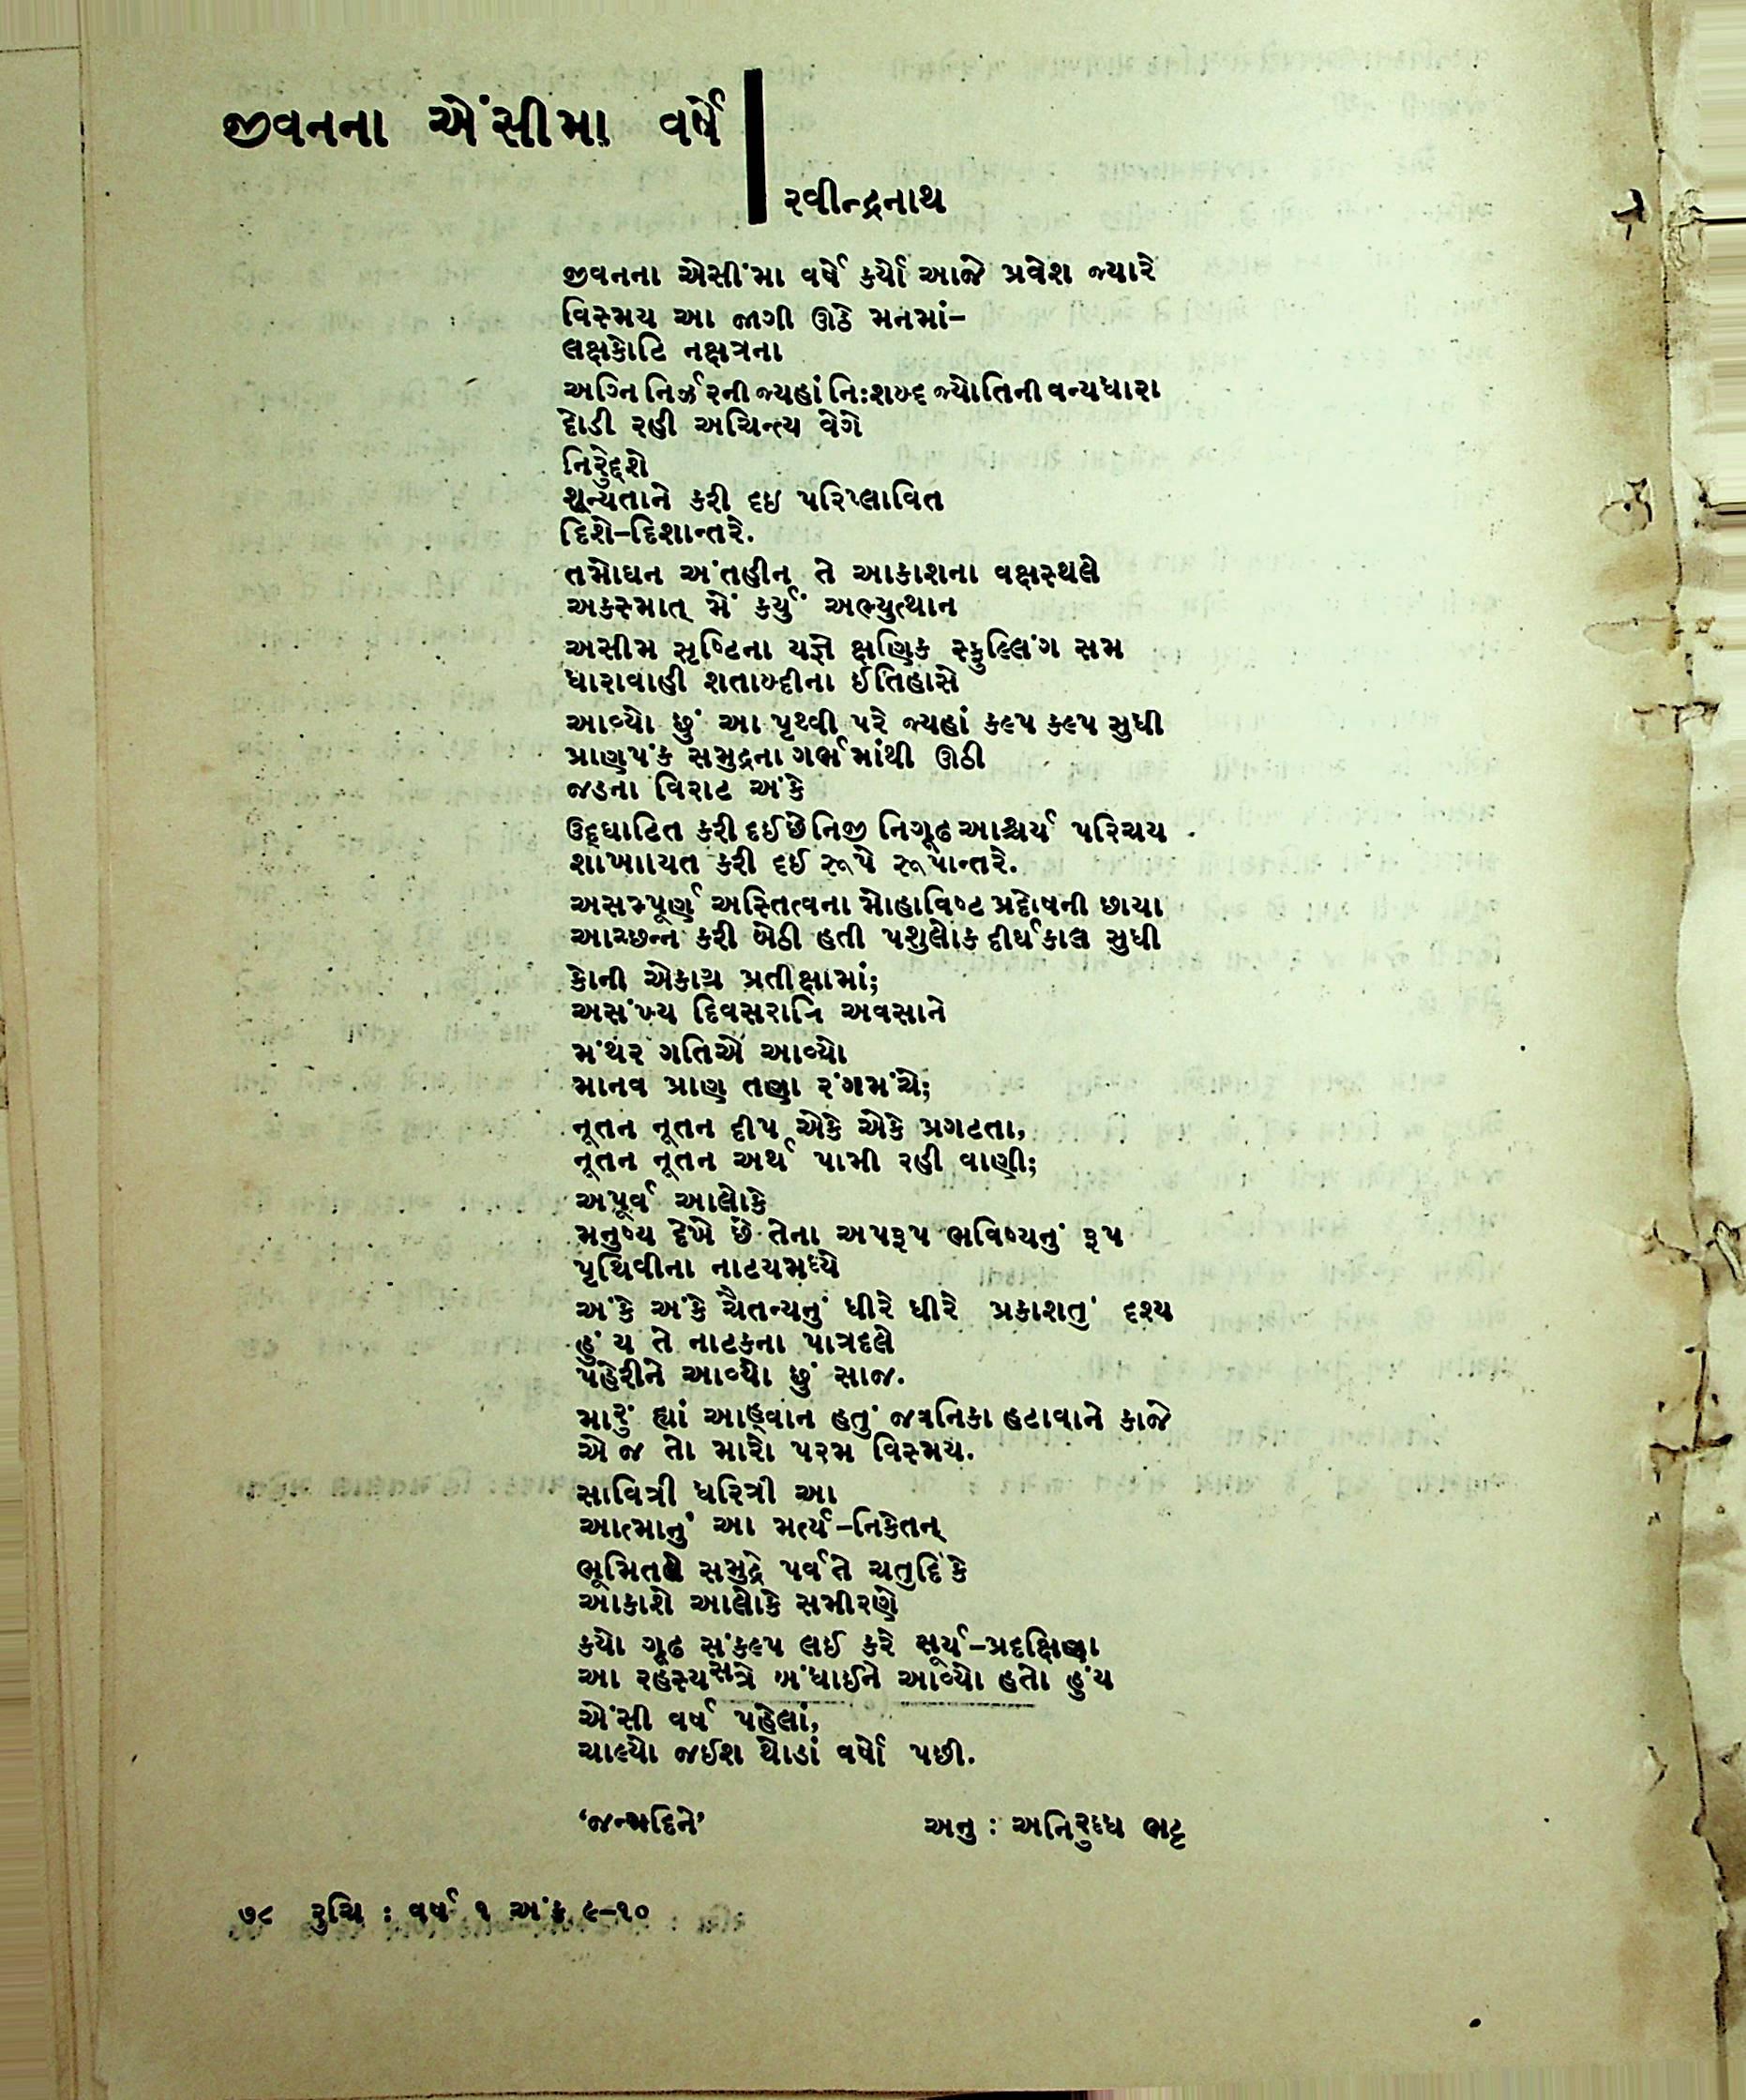 જીવનના એંસીમા વર્ષે
રવીન્દ્રનાથ
જીવનના એસીંમા વર્ષે કર્યો આજે પ્રવેશ જ્યારે
વિસ્મય આ જાગી ઊઠે મનમાં–
લક્ષકોટિ નક્ષત્રના
અગ્નિ નિર્ઝરની જ્યહાં નિઃશબ્દ જ્યોતિની વન્યધારા
દોડી રહી અચિન્ત્ય વેગે
નિરુદ્દેશે
શૂન્યતાને કરી દઇ પરિપ્લાવિત
દિશે–દિશાન્તરે.
તમોઘન અંતહીન તે આકાશના વક્ષસ્થલે
અકસ્માત્ મેં કર્યું અભ્યુત્થાન
અસીમ સૃષ્ટિના યજ્ઞે ક્ષણિક સ્ફુલ્લિંગ સમ
ધારાવાહી શતાબ્દીના ઈતિહાસે
આવ્યો છું આ પૃથ્વી પરે જ્યહાં કલ્પ કલ્પ સુધી
પ્રાણપંક સમુદ્રના ગર્ભમાંથી ઊઠી
જડના વિરાટ અંકે
ઉદ્ઘાટિત કરી દઈ છે નિજી નિગૂઢ આશ્ચર્ય પરિચય
શાખાાયત કરી દઈ રૂપે રૂપાન્તરે.
અસમ્પૂર્ણ અસ્તિત્વના મોહાવિષ્ટ પ્રદોષની છાયા
આચ્છન્ન કરી બેઠી હતી પશુલોક દીર્ઘકાલ સુધી
કોની એકાગ્ર પ્રતીક્ષામાં;
અસંખ્ય દિવસરાત્રિ અવસાને
મંથર ગતિએ આવ્યો
માનવ પ્રાણ તણા રંગમંચે;
નૂતન નૂતન દીપ એકે એકે પ્રગટતા,
નૂતન નૂતન અર્થ પામી રહી વાણી;
અપૂર્વ આલોકે
મનુષ્ય દેખે છે તેના અપરૂપ ભવિષ્યનું રૂપ
પૃથિવીના નાટયમધ્યે
અંકે અંકે ચૈતન્યનું ધીરે ધીરે પ્રકાશતું દૃશ્ય
હું ય તે નાટકના પાત્રદલે
પહેરીને આવ્યો છું સાજ.
મારું હ્યાં આહ્વાન હતું જવનિકા હટાવાને કાજે
એ જ તો મારો પરમ વિસ્મય.
સાવિત્રી ધરિત્રી આ
આત્માનું આ મર્ત્ય–નિકેતન્
ભૂમિતલે સમુદ્રે પર્વતે ચતુર્દિકે
આકાશે આલોકે સમીરણે
કયો ગૂઢ સંકલ્પ લઈ કરે સૂર્ય–પ્રદક્ષિણા
આ રહસ્યસૂત્રે બંધાઈને આવ્યો હતો હુંય
એંસી વર્ષ પહેલાં,
ચાલ્યો જઈશ થોડાં વર્ષો પછી.
‘જન્મદિને’ અનુ : અનિરુધ્ધ ભટ્ટ
૭૮ રુચિ : વર્ષ ૧ અંક ૯–૧૦